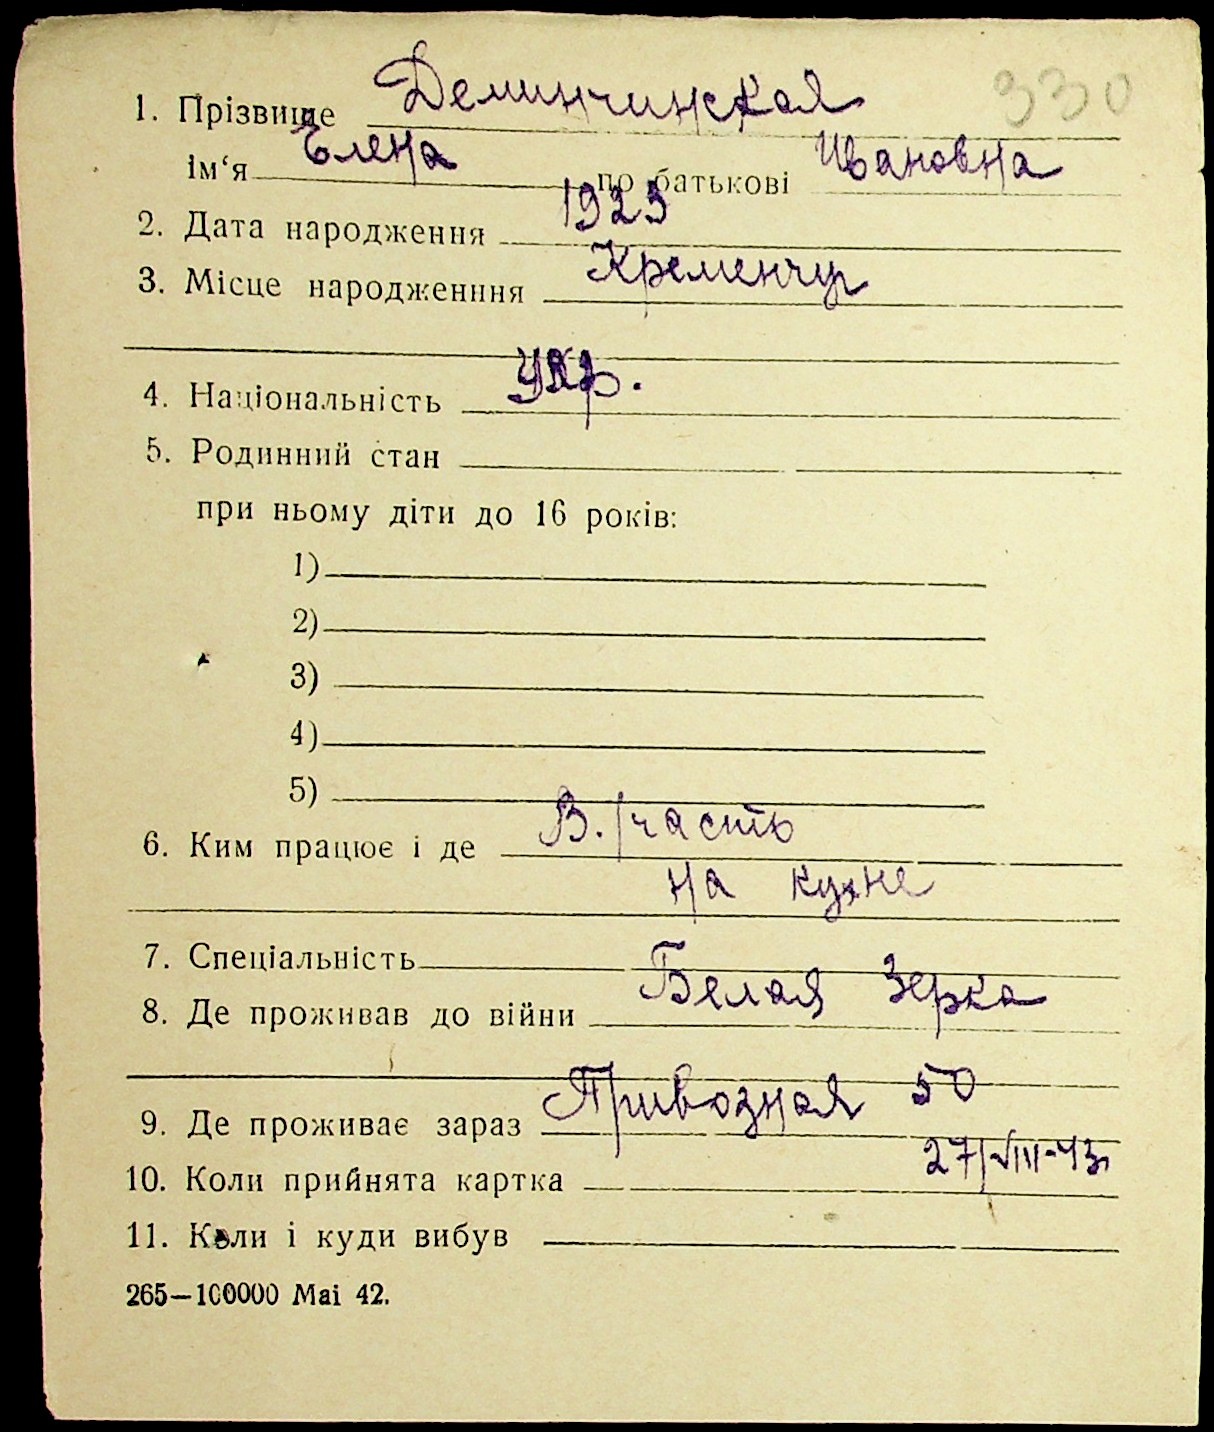 330
1. Прізвище Деминчинская
ім‘я Елена по батькові Ивановна
2. Дата народження 1923
3. Місце народженння Кременчуг
4. Національність Укр.
5. Родинний стан
при ньому діти до 16 років:
1)
2)
3)
4)
5)
6. Ким працює і де В./часть
на кухне
7. Спеціальність
8. Де проживав до війни Белая Зерка
9. Де проживає зараз Привозная 50
10. Коли прийнята картка 27/VIII-43
11. Коли і куди вибув
265—100000 Mai 42.